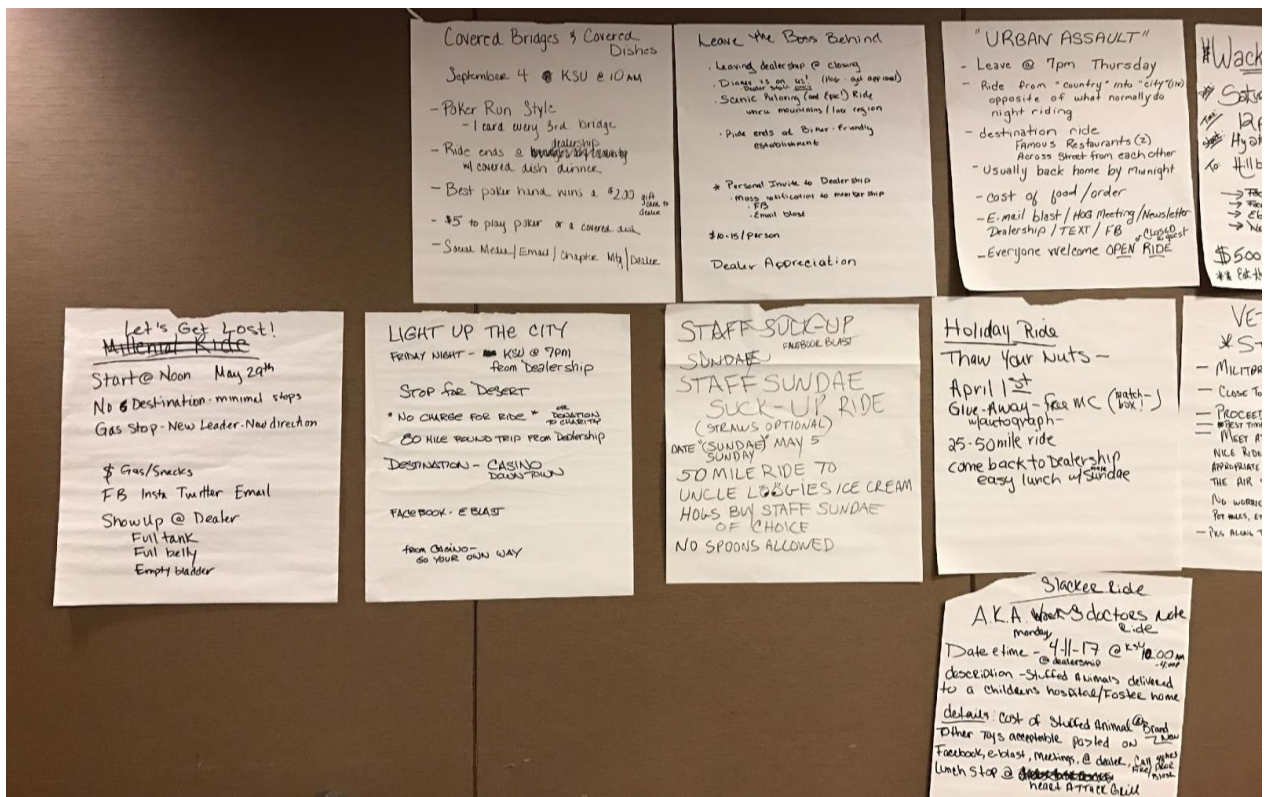 Covered Bridges & Covered
Dishes
September 4 KSU @ 10 AM
- Poker Run Style
- 1 card every 3rd bridge
- Ride ends @ dealership
w/ covered dish dinner
- Best poker hand wins a $200 gift
card to
dealer
- $5 to play poker or a covered dish
- Social Media / Email / Chapter Mtg / Dealer
Leave the Boss Behind
· Leaving dealership @ closing
· Dinner is on us! (HOG - get approval)
· Scenic (and Epic!) Ride
thru mountains / lake region
· Ride ends at Biker-Friendly
establishment
* Personal Invite to Dealership
· Mass notification to membership
· FB
· Email blast
$10-15/person
Dealer Appreciation
"URBAN ASSAULT"
- Leave @ 7pm Thursday
- Ride from "country" into "city"
opposite of what normally do
night riding
- destination ride
Famous Restaurants (2)
Across Street from each other
- Usually back home by Midnight
- cost of food/order
- E-mail blast / HOG Meeting / Newsletter
Dealership / TEXT / FB
or CLOSED
& guest
- Everyone welcome OPEN RIDE
$500
Let's Get Lost!
Millenial Ride
Start @ Noon May 29th
No Destination - minimal stops
Gas Stop - New Leader - New direction
$ Gas/Snacks
FB Insta Twitter Email
Show Up @ Dealer
Full tank
Full belly
Empty bladder
LIGHT UP THE CITY
FRIDAY NIGHT - KSU @ 7pm
from Dealership
STOP FOR DESERT
* NO CHARGE FOR RIDE * OR
DONATION
TO CHARITY
80 MILE ROUND TRIP FROM DEALERSHIP
DESTINATION - CASINO
DOWNTOWN
FACEBOOK - E BLAST
from CASINO -
GO YOUR OWN WAY
STAFF SUCK-UP
FACEBOOK BLAST
SUNDAE
STAFF SUNDAE
SUCK-UP RIDE
(STRAWS OPTIONAL)
DATE "(SUNDAE)" MAY 5
SUNDAY
50 MILE RIDE TO
UNCLE LOOGIES ICE CREAM
HOGS BUY STAFF SUNDAE
OF CHOICE
NO SPOONS ALLOWED
Holiday Ride
Thaw Your Nuts -
April 1st
Give-Away - free MC (match-
box!)
w/autograph -
25-50 mile ride
come back to Dealership
easy lunch w/ Sundae
- MILITAR
- CLOSE TO
- PROCEED
- BEST TIM
- MEET A
NICE RIDE
APPROPRIATE
THE AIR
Slacker Ride
A.K.A. doctors Note
Ride
monday
Date & time - 4-11-17 @ KSU 10:00 AM
@ dealership
description - Stuffed Animals delivered
to a childrens hospital/Foster home
details: cost of Stuffed Animal
Other Toys acceptable posted on
Facebook, e-blast, Meetings, @ dealer,
lunch Stop @
heart ATTACK Grill